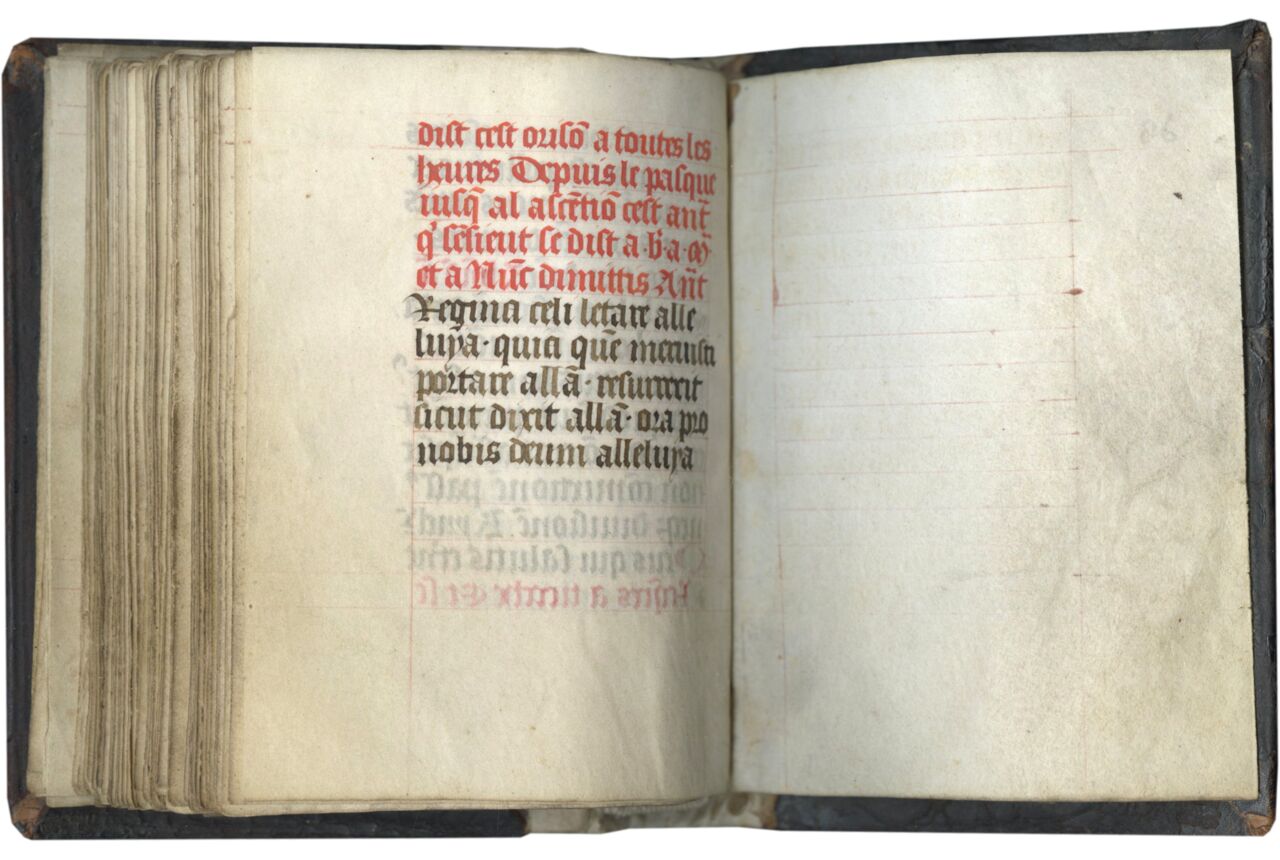 dist cest orisō a toutes les
heures Depuis le pasque
iusq̄ al ascētiō cest ant̄
q' sēsieut se dist a b̄ a
et a Nūc dimittis Ant̄
Regina celi letare alle
luya · quia quē meruisti
portare allā · resurrexit
sicut dixit allā · ora pro
nobis deum alleluya